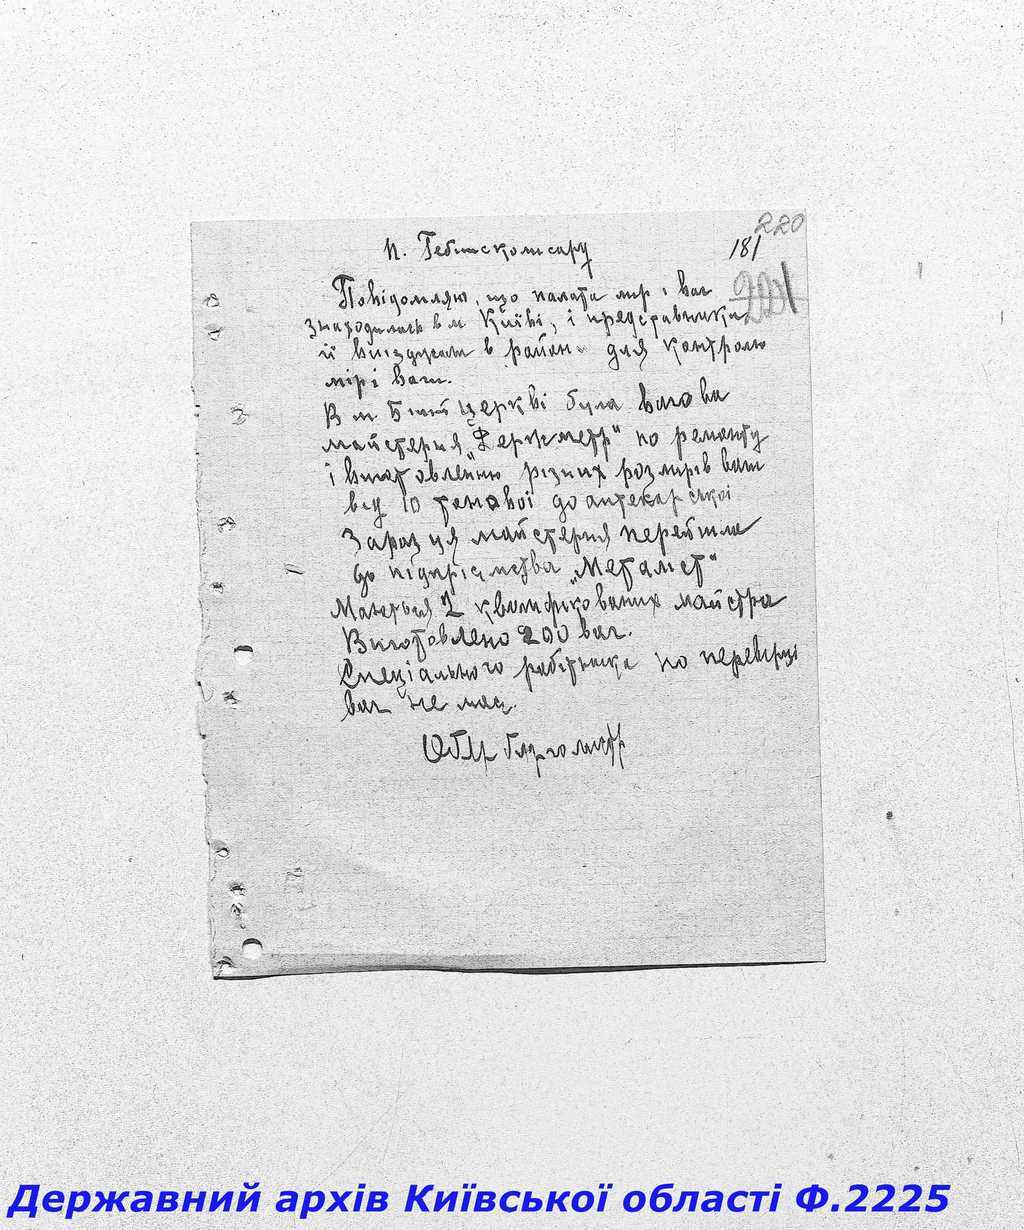 220
181
221
п. Гебітскомісару
Повідомляю, що палата мір і ваг
знаходилась в м Київі, і представники
її виїзджали в район для контролю
мір і ваги.
В м Білій церкві була вагова
майстерня „Держметр" по ремонту
і виготовленню різних розмірів ваги
від 10 тоновоі до аптекарської
Зараз ця майстерня перейшла
до підприємства „Металіст"
Маються 2 кваліфікованих майстра
Виготовлено 200 ваг.
Спеціального робітника по перевірці
ваг не має.
Обер бургомістр
Державний архів Київської області Ф.2225